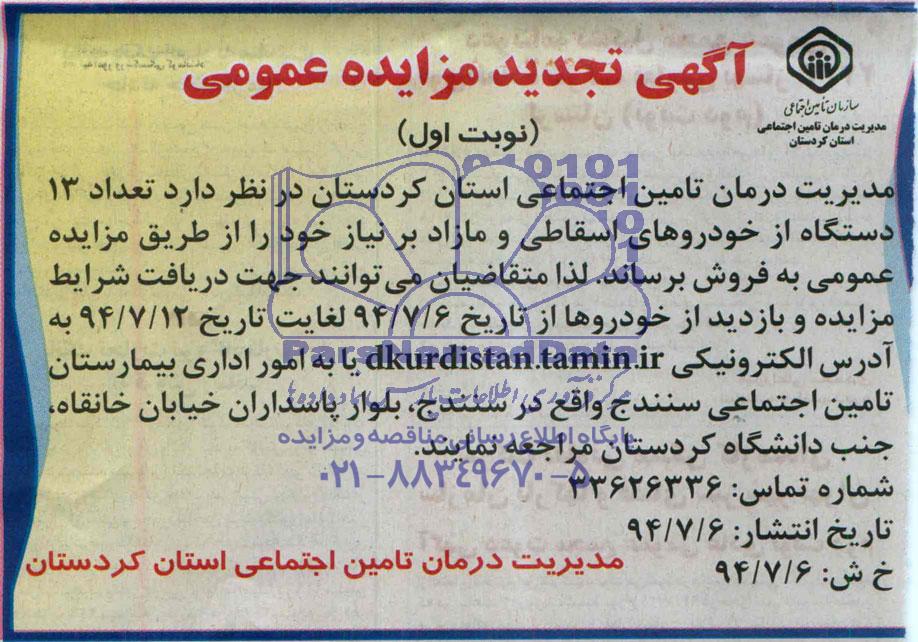 آگهی تجدید مزایده عمومی
سازمان تأمین اجتماعی
مدیریت درمان تامین اجتماعی
استان کردستان
(نوبت اول)
مدیریت درمان تامین اجتماعی استان کردستان در نظر دارد تعداد ۱۳
دستگاه از خودروهای اسقاطی و مازاد بر نیاز خود را از طریق مزایده
عمومی به فروش برساند. لذا متقاضیان می‌توانند جهت دریافت شرایط
مزایده و بازدید از خودروها از تاریخ ۹۴/۷/۶ لغایت تاریخ ۹۴/۷/۱۲ به
آدرس الکترونیکی dkurdistan.tamin.ir یا به امور اداری بیمارستان
تامین اجتماعی سنندج واقع در سنندج، بلوار پاسداران خیابان خانقاه،
جنب دانشگاه کردستان مراجعه نمایند.
شماره تماس: ۳۳۶۲۶۳۳۶
تاریخ انتشار: ۹۴/۷/۶
خ ش: ۹۴/۷/۶
مدیریت درمان تامین اجتماعی استان کردستان
ParsNamadData
پایگاه اطلاع رسانی مناقصه و مزایده
۰۲۱-۸۸۳۴۹۶۷۰-۵